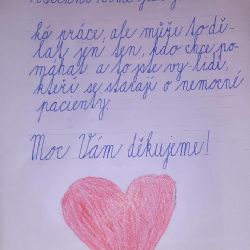 ká práce, ale může to dě-
lat jen ten, kdo chce po-
máhat a to jste vy-lidi,
kteří se starají o nemocné
pacienty.
Moc Vám děkujeme!